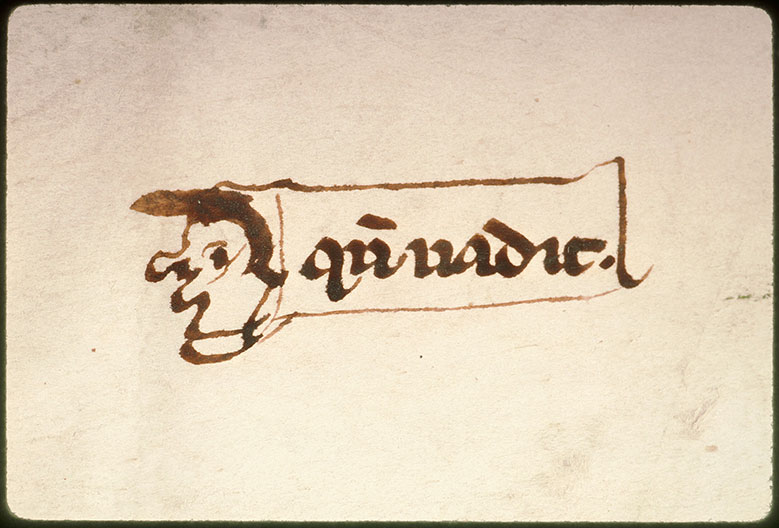 qn̄ uadit.